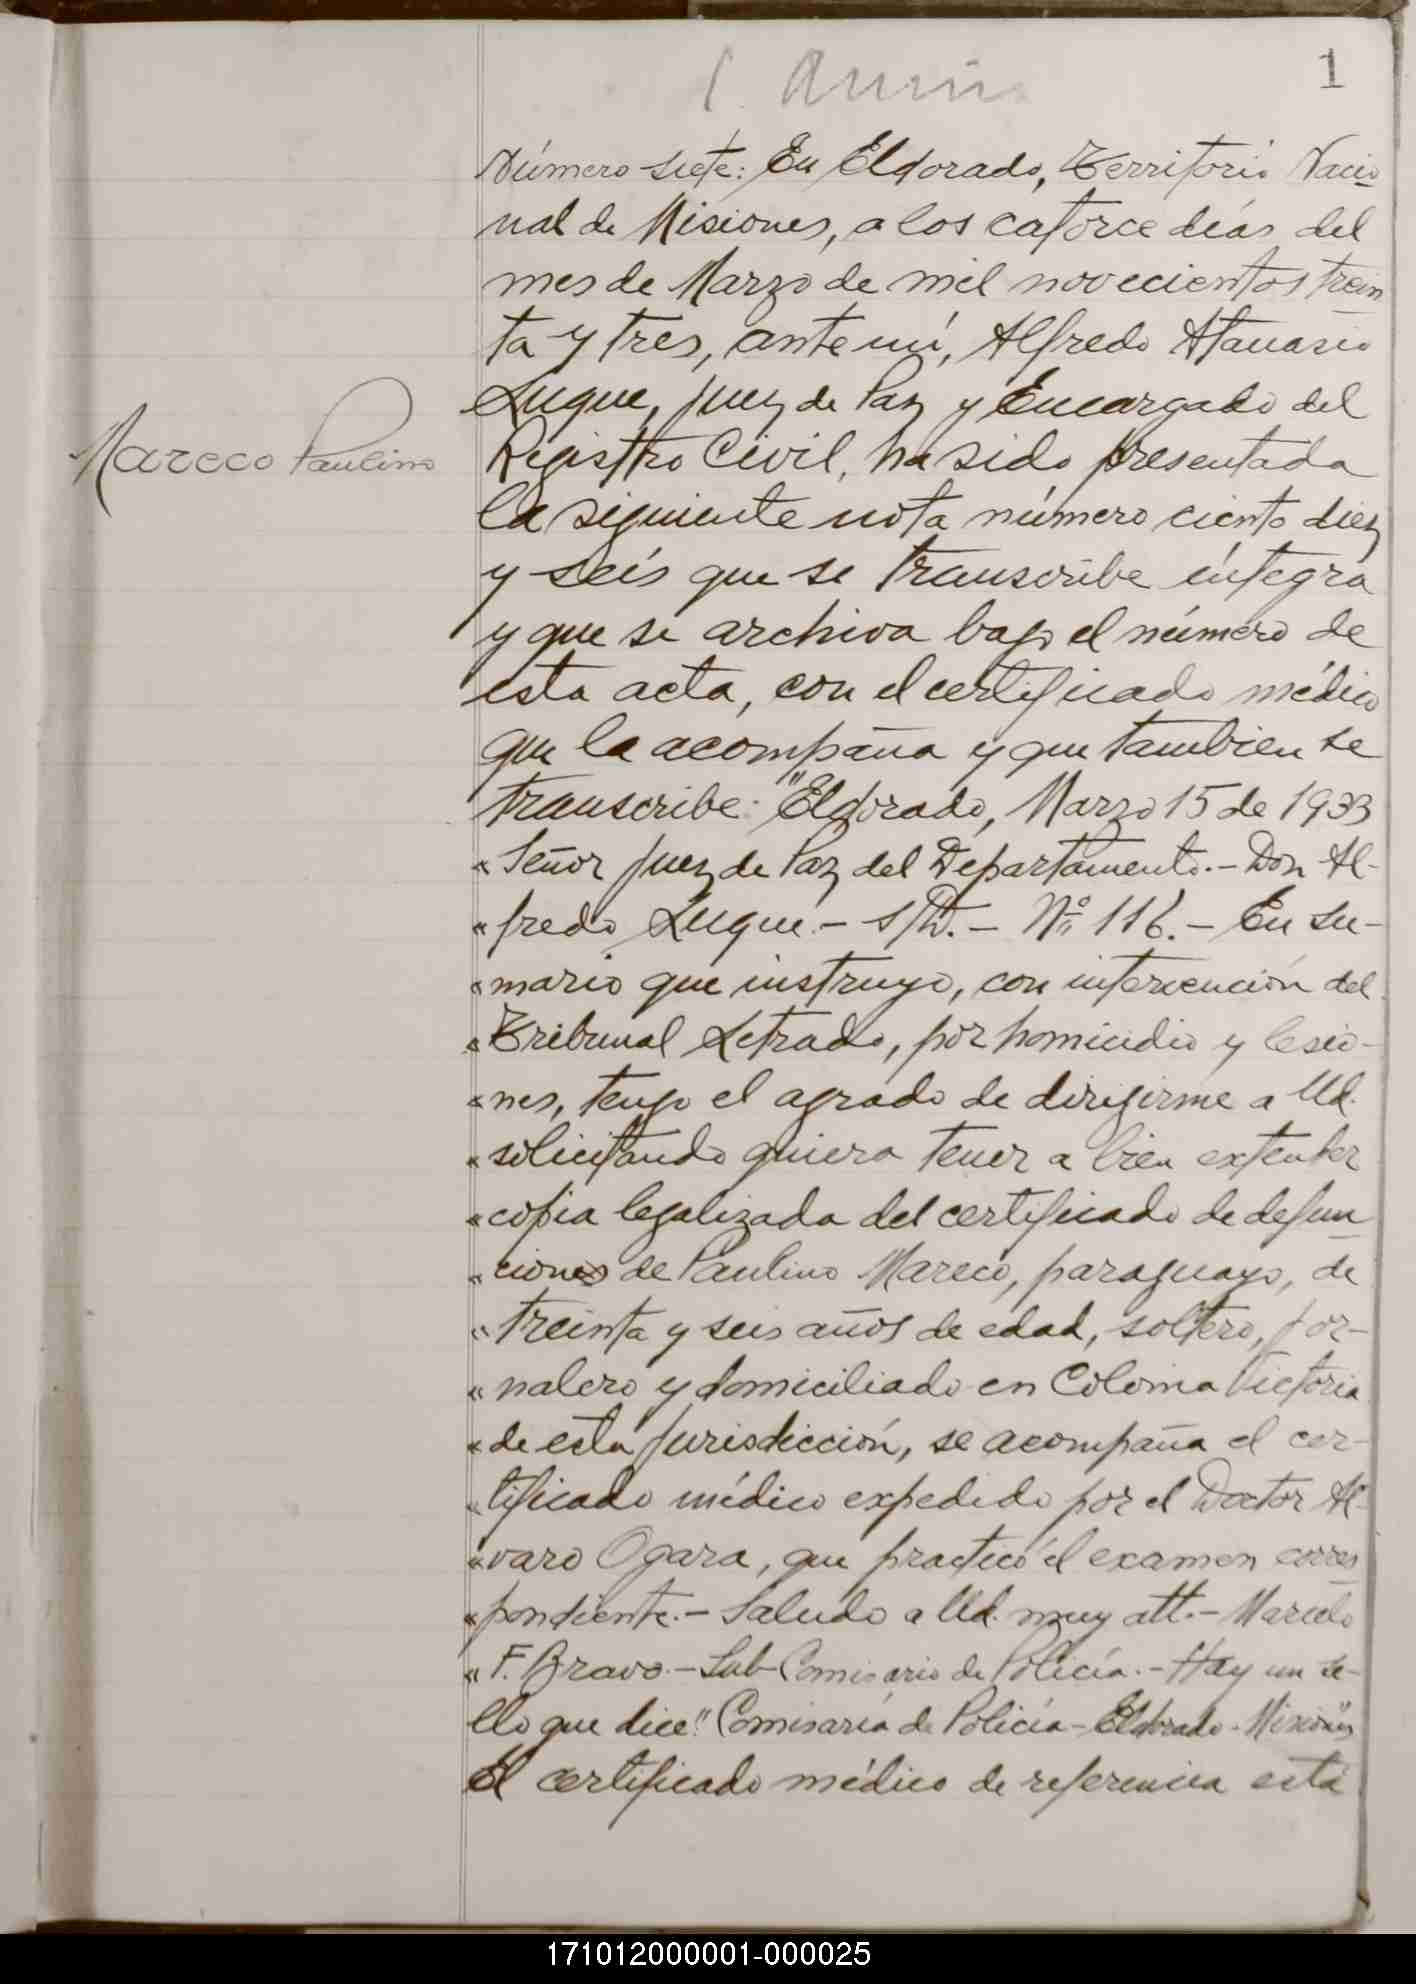 1
Número siete: En Eldorado, Territorio Nacio
nal de Misiones, a los catorce días del
mes de Marzo de mil novecientos trein
ta y tres, ante mí, Alfredo Atanasio
Luque, Juez de Paz y Encargado del
Mareco Paulino
Registro Civil, ha sido presentada
la siguiente nota número ciento diez
y seis que se transcribe íntegra
y que se archiva bajo el número de
esta acta, con el certificado médico
que la acompaña y que tambien se
transcribe: "Eldorado, Marzo 15 de 1933
"Señor Juez de Paz del Departamento.- Don Al-
"fredo Luque.- S/D.- Nº 116.- En su-
"mario que instruyo, con intervención del
"Tribunal Letrado, por homicidio y lesio-
"nes, tengo el agrado de dirigirme a Ud.
"solicitando quiera tener a bien extender
"copia legalizada del certificado de defun
"ciones de Paulino Mareco, paraguayo, de
"treinta y seis años de edad, soltero, jor-
"nalero y domiciliado en Colonia Victoria
"de esta jurisdicción, se acompaña el cer-
"tificado médico expedido por el Doctor Al-
"varo Ogara, que practicó el examen corres
"pondiente.- Saludo a Ud. muy att.- Marcelo
"F. Bravo.- Sub-Comisario de Policía.- Hay un se-
llo que dice:" Comisaría de Policía - Eldorado - Misiones"
El certificado médico de referencia está
171012000001-000025